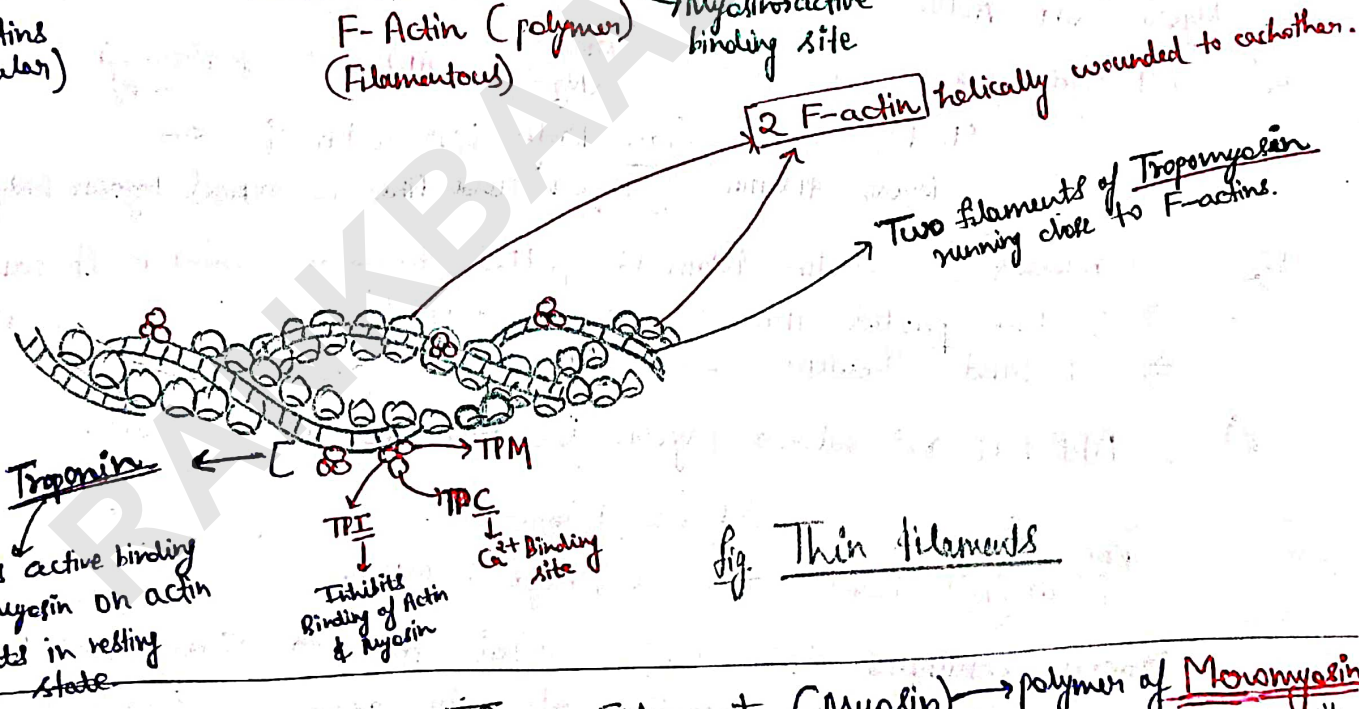 tins
ular)
F-Actin (polymer)
(Filamentous)
binding site
2 F-actin helically wounded to eachother.
Two filaments of Tropomyosin
running close to F-actins.
RANKBAA
Troponin
TPM
TPI
TPC
Ca2+ Binding
site
Inhibits
Binding of Actin
& Myosin
active binding
on actin
in resting
state
fig. Thin filaments
(Myosin) → polymer of Meromyosin